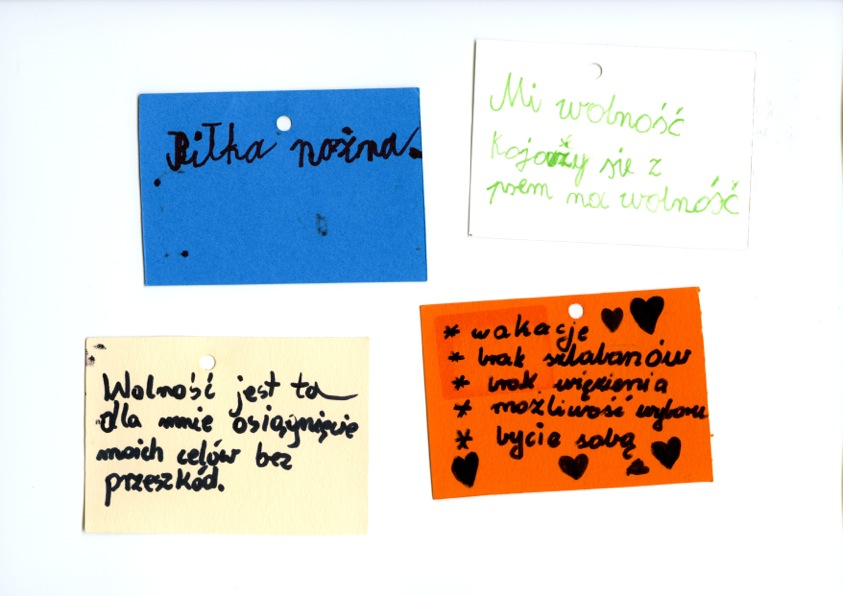 Piłka nożna.
Mi wolność
kojaży sie z
psem na wolność
Wolność jest to
dla mnie osiągnięcie
moich celów bez
przeszkód.
* wakacje
* brak szlabanów
* brak więzienia
* możliwość wyboru
* bycie sobą